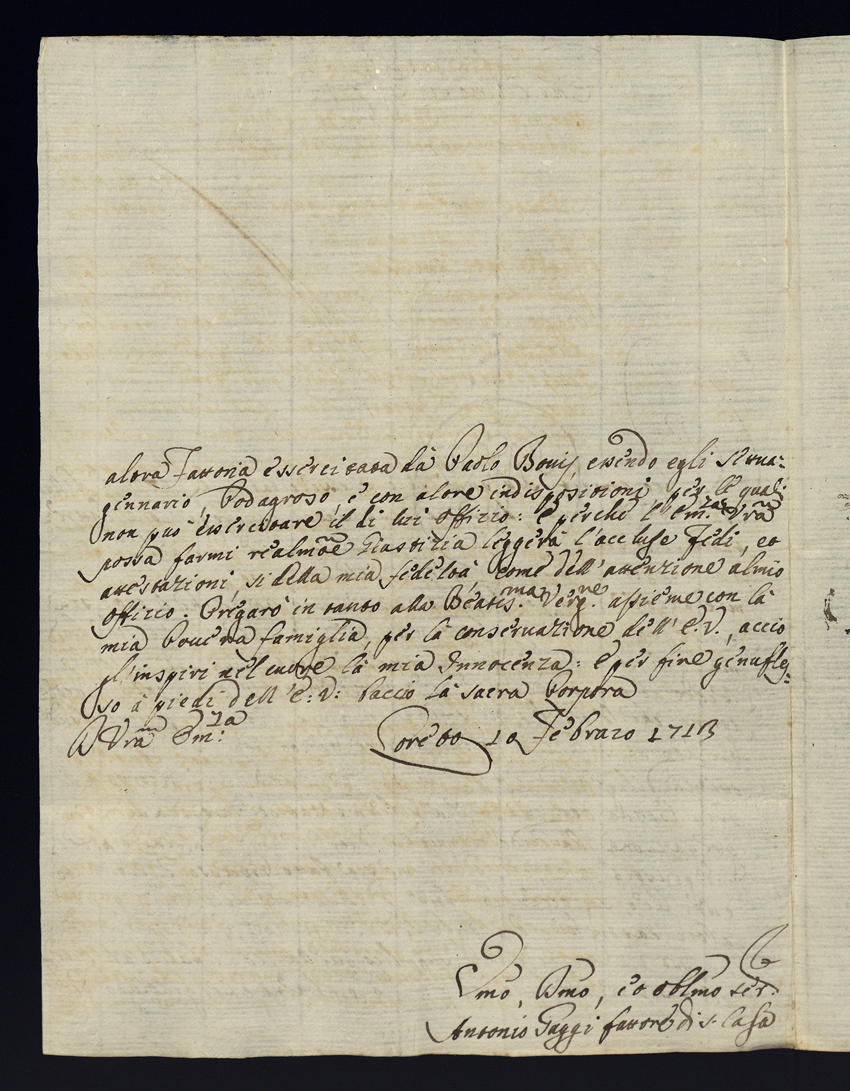 altra Fattoria essercitata dà Paolo Bonis, essendo egli Settua=
gennario, Podagroso, è con altre indisposizioni, per le quali
non può essercitare il di lui offizio: è perche l'Em.za Vrã
possa farmi realmẽte Giustizia leggerà l'accluse Fedi, et
attestazioni, si della mia fedeltà, come dell'attenzione al mio
offizio. Pregarò in tanto alla Beatis.ma Verg.ne assieme con la
mia Povera famiglia, per la conservazione dell'E.V., acciò
gl'inspiri nel cuore la mia Innocenza: è per fine genufles=
so a piedi dell'E:V: baccio la sacra Porpora
D Vrã Em:za
Loreto 10 Febraro 1713
Umo, Dmo, et oblmo ser:
Antonio Gaggi fattore di s. Casa